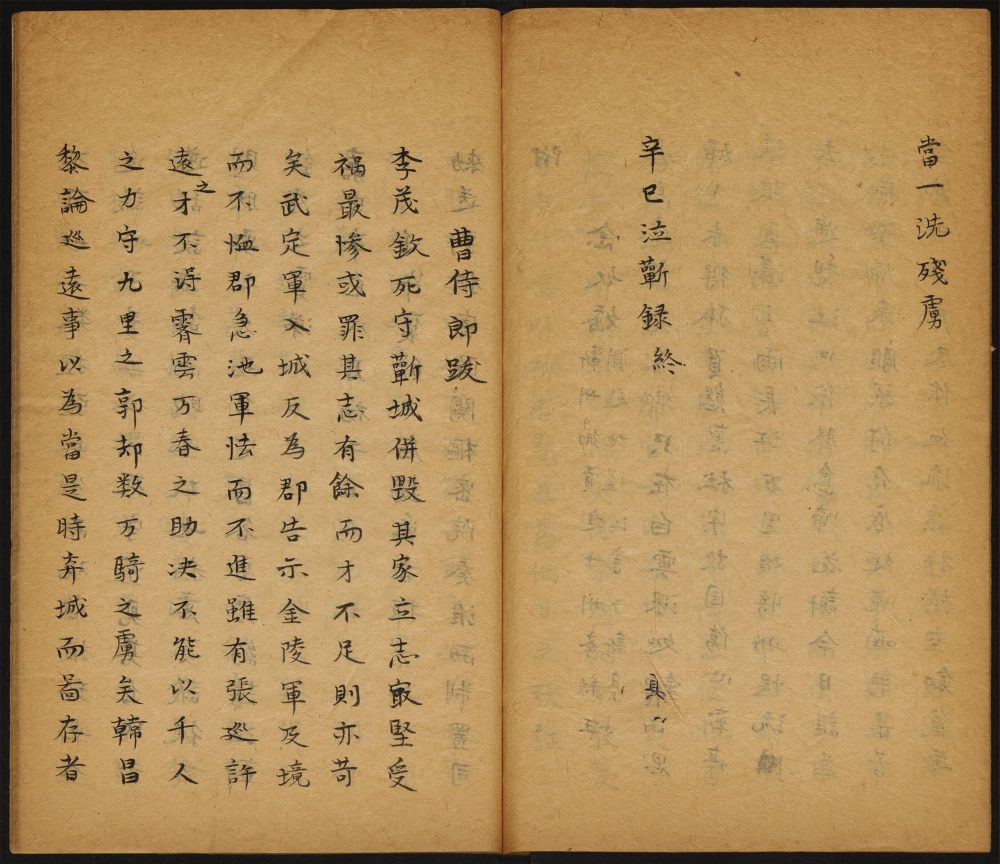 當一洗殘虜
辛巳泣蘄録終
曹侍郎跋
李茂欽死守蘄城併毀其家立志㝡堅受
禍最慘或罪其志有餘而才不足則亦苛
矣武定軍入城反為郡告示金陵軍及境
而不恤郡急池軍怯而不進雖有張巡許
遠之才不淂霽雲万春之助决不能以千人
之力守九里之郭却数万騎之虜矣韓昌
黎論巡遠事以為當是時弃城而啚存者